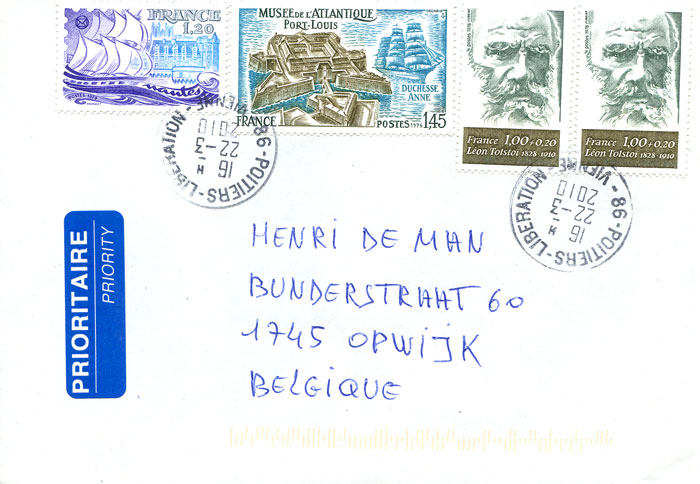 FRANCE
1,20
nantes
MUSÉE DE L'ATLANTIQUE
PORT-LOUIS
DUCHESSE
ANNE
FRANCE
POSTES 1976
1,45
France 1,00+0,20
Léon Tolstoï 1828-1910
France 1,00+0,20
Léon Tolstoï 1828-1910
86-POITIERS-LIBERATION - VIENNE
16 H
22-3
2010
86-POITIERS-LIBERATION VIENNE
16 H
22-3
2010
PRIORITAIRE
PRIORITY
HENRI DE MAN
BUNDERSTRAAT 60
1745 OPWIJK
BELGIQUE